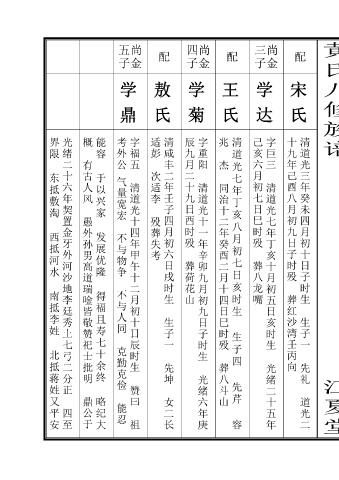 黄氏八修族谱
江夏堂
配 宋氏
清道光三年癸未四月初十日子时生 生子一 先礼 道光二
十九年己酉八月初九日子时殁 葬红沙湾壬丙向
尚金三子 学达
字巨三 清道光七年丁亥十月初五日亥时生 光绪二十五年
己亥六月初七日巳时殁 葬八龙嘴
配 王氏
清道光七年丁亥八月初七日亥时生 生子四 先芹 容
兆 杰 同治十二年癸酉二月十四日巳时殁 葬八斗山
尚金四子 学菊
字重阳 清道光十一年辛卯九月初九日子时生 光绪六年庚
辰九月二十九日酉时殁 葬荷花山
配 敖氏
清咸丰二年壬子四月初六日戌时生 生子一 先坤 女二长
适彭 次适李 殁葬失考
尚金五子 学鼎
字福五 清道光十四年甲午十二月初十日辰时生 赞曰 祖
考外公 气量宽宏 不与物争 不与人同 克勤克俭 能忍
能容 于以兴家 发展优隆 得福且寿七十余终 略纪大
概 有古人风 愚外孙男高道瑞唫皆敬赞祀士批明 鼎公于
光绪二十六年契置金牙外河沙地李廷秀上七弓二分正 四至
界限 东抵敷淘 西抵河水 南抵李姓 北抵蒋姓又平安